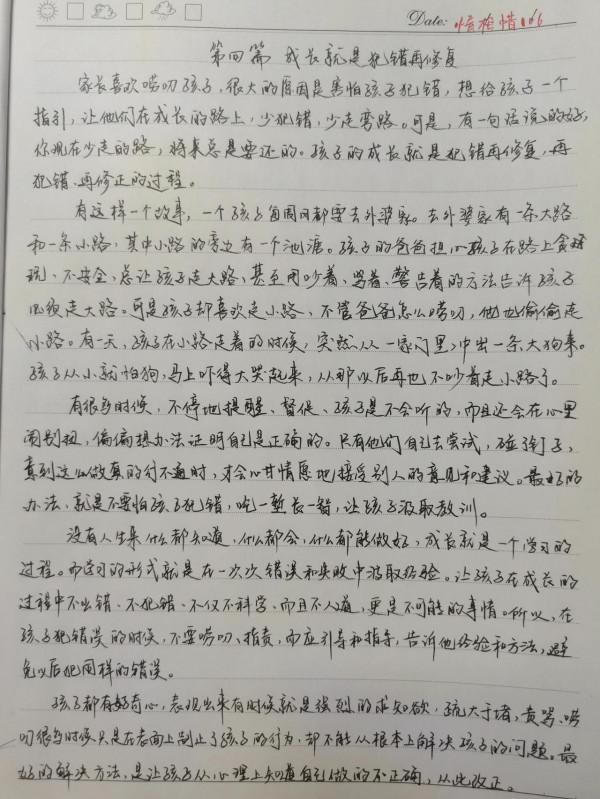 Date: 惜惜 166
第四篇 成长就是犯错再修复
家长喜欢唠叨孩子,很大的原因是害怕孩子犯错,想给孩子一个
指引,让他们在成长的路上,少犯错,少走弯路。可是,有一句话说的好,
你现在少走的路,将来总是要还的。孩子的成长就是犯错再修复,再
犯错、再修正的过程。
有这样一个故事,一个孩子每周都要去外婆家。去外婆家有一条大路
和一条小路,其中小路的旁边有一个池塘。孩子的爸爸担心孩子在路上贪
玩、不安全,总让孩子走大路,甚至用吵着、骂着、警告着的方法告诉孩子
必须走大路。可是孩子却喜欢走小路、不管爸爸怎么唠叨,他也偷偷走
小路。有一天,孩子在小路走着的时候,突然从一家门里冲出一条大狗来。
孩子从小就怕狗,马上吓得大哭起来,从那以后再也不吵着走小路了。
有很多时候,不停地提醒、督促、孩子是不会听的,而且还会在心里
闹别扭,偏偏想办法证明自己是正确的。只有他们自己去尝试,碰钉子,
直到这么做真的行不通时,才会心甘情愿地接受别人的意见和建议。最好的
办法,就是不要怕孩子犯错,吃一堑长一智,让孩子汲取教训。
没有人生来什么都知道,什么都会,什么都能做好,成长就是一个学习的
过程。而学习的形式就是在一次次错误和失败中汲取经验。让孩子在成长的
过程中不出错、不犯错、不仅不科学、而且不人道,更是不可能的事情。所以,在
孩子犯错误的时候,不要唠叨、指责,而应引导和指导,告诉他经验和方法,避
免以后犯同样的错误。
孩子都有好奇心,表现出来有时候就是强烈的求知欲,疏大于堵,责骂、唠
叨很多时候只是在表面上制止了孩子的行为,却不能从根本上解决孩子的问题。最
好的解决方法,是让孩子从心理上知道自己做的不正确,从此改正。